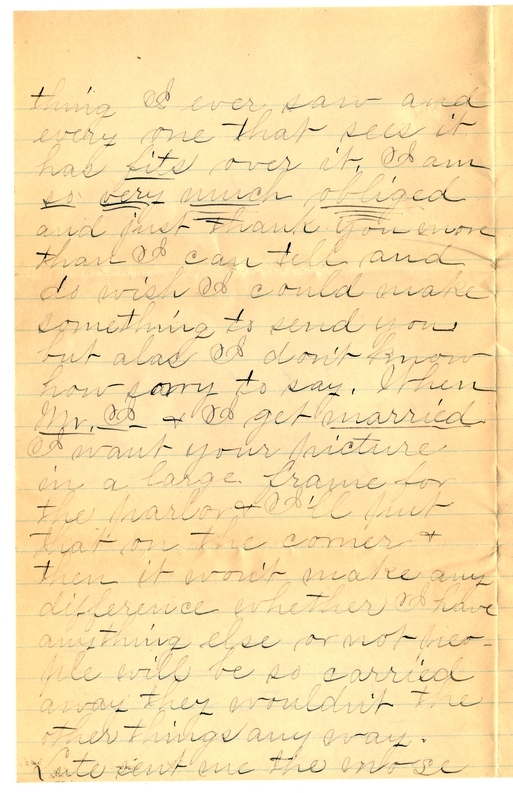 thing I ever saw and
every one that sees it
has fits over it. I am
so very much obliged
and just thank you more
than I can tell and
do wish I could make
something to send you
but alas I don't know
how sorry to say. When
Mr. I & I get married
I want your picture
in a large frame for
the parlor & I'll put
that on the corner &
then it won't make any
difference whether I have
anything else or not peo-
ple will be so carried
away they wouldn't the
other things any way.
sent me the